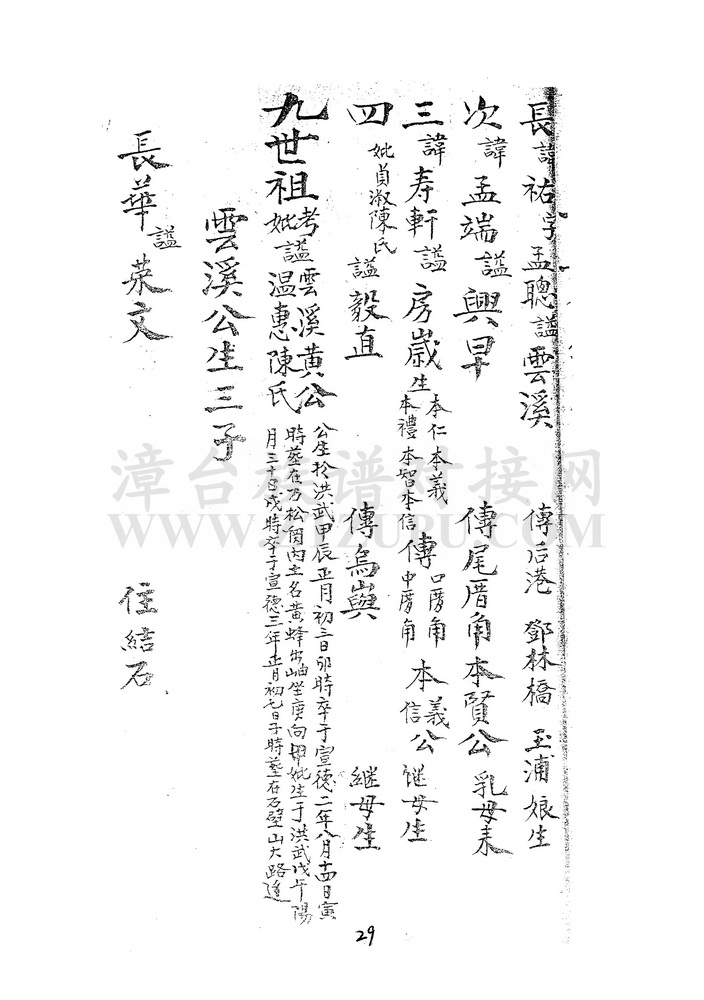 長諱祐字孟聰謚雲溪 傳后港 鄧林橋 玉浦娘生
次諱孟端謚興早 傳尾厝角本賢公 乳母来
三諱寿軒謚房嵗生本仁本義本禮本智本信 傳口厝角中厝角 本義信公 继母生
四妣貞淑陳氏謚毅直 傳烏嶼 继母生
九世祖考謚雲溪黄公妣謚温惠陳氏
公生於洪武甲辰正月初三日卯時卒于宣德二年八月十四日寅
時葬在乃松閣内土名黄蜂出岫坐庚向甲妣生于洪武戊午陽
月三十日戌時卒于宣德三年正月初七日子時葬在石壁山大路邊
雲溪公生三子
長華謚荣文 住結石
漳台族谱对接网
29